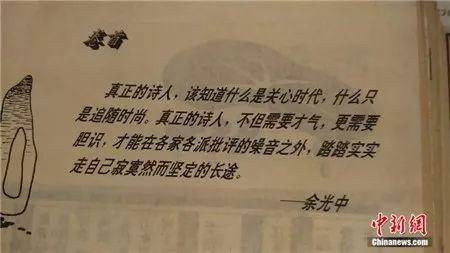 卷首
真正的诗人，该知道什么是关心时代，什么只
是追随时尚。真正的诗人，不但需要才气，更需要
胆识，才能在各家各派批评的噪音之外，踏踏实实
走自己寂寞然而坚定的长途。
——余光中
中新網
Chinanews.com